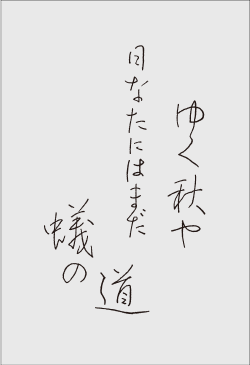 ゆく秋や
日なたにはまだ
蟻の道